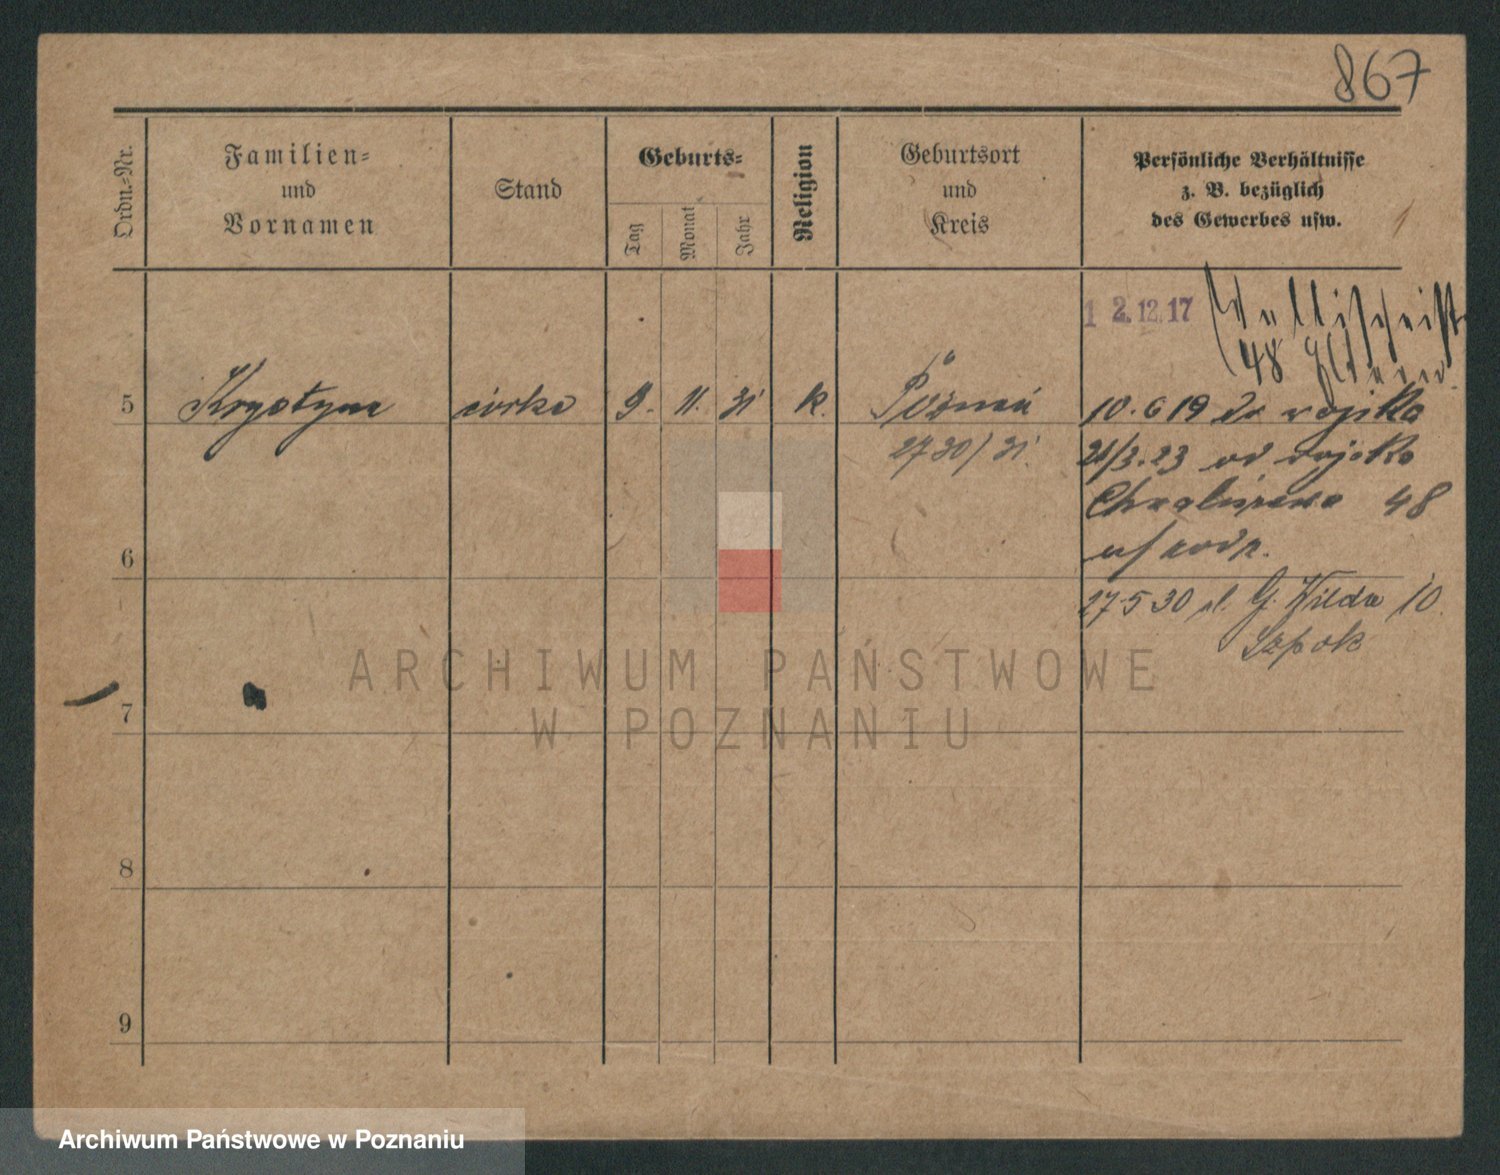 867
Ordn.-Nr.
Familien-
und
Vornamen
Stand
Geburts-
Tag
Monat
Jahr
Religion
Geburtsort
und
Kreis
Persönliche Verhältnisse
z. B. bezüglich
des Gewerbes usw.
12.12.17 Wallischeistr.
48 Eltern.
5 Krystyna córka 9. 11. 31 k. Poznań 10.6 19 do wojska
2730/31. 21/3.23 od wojska
Chwaliszewo 48
u/ rodz.
6
27.5 30 G. Wilda 10.
7
8
9
ARCHIWUM PAŃSTWOWE
W POZNANIU
Archiwum Państwowe w Poznaniu